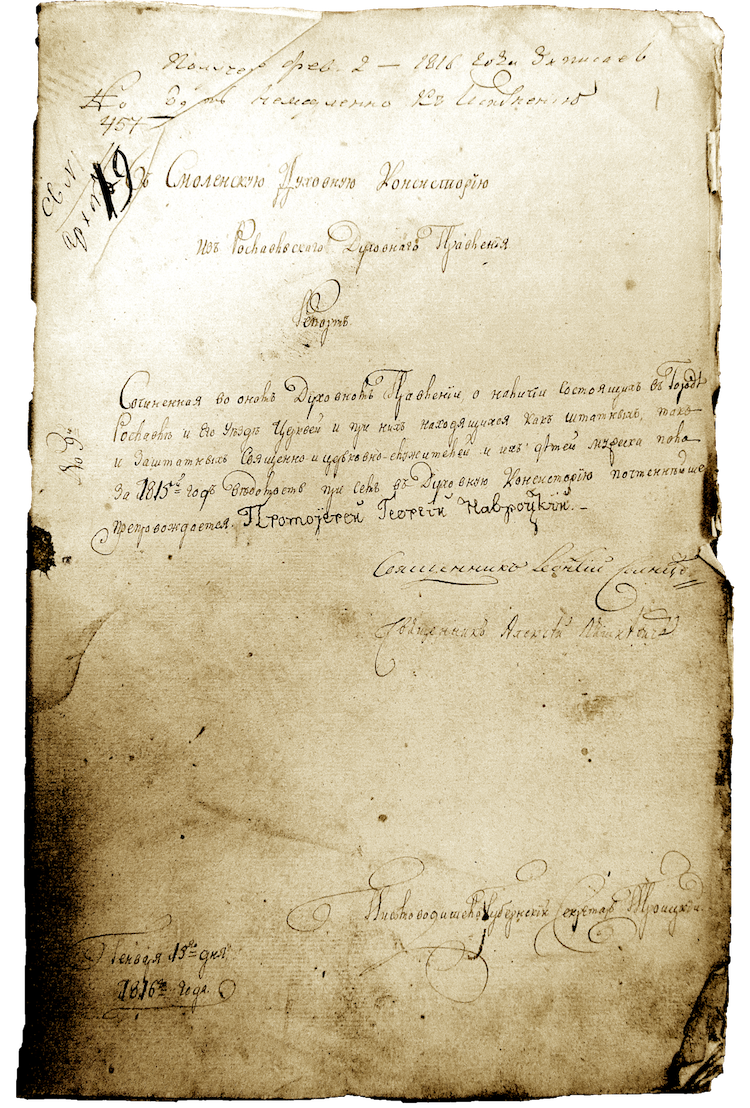 Получ. Фев. 2 — 1816 года Записав
No 457 немедленно къ
19
Въ Смоленскую Духовную Консисторїю
Изъ Рославльского Духовнаго Правленїя
Репортъ.
Сочиненная во ономъ Духовномъ Правленїи, о наличїи состоящихъ въ Городѣ
Рославлѣ и Его Уѣздѣ Церквей и при нихъ находящихся какъ штатныхъ, такъ
No 9й
и Заштатныхъ Священно и церковно-служителей и ихъ дѣтей мужеска пола
За 1815й годъ Вѣдомость при семъ въ Духовную Консисторїю почтеннѣйше
препровождается. Протоїерей Георгїй Навроцкїй. —
Священникъ
Священникъ Алексѣй
Губернскїй Секретарь Троицкїй.
Генваря 19го дня,
1816го года.